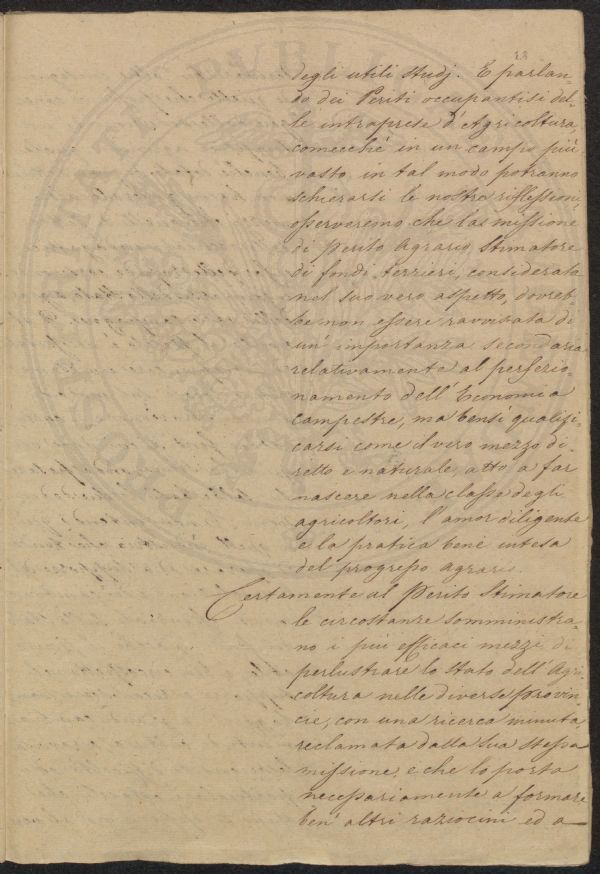 degli utili studj. E parlan-
do dei Periti occupantisi del-
le intraprese d'Agricoltura,
comecchè in un campo più
vasto in tal modo potranno
schierarsi le nostre riflessioni
osserveremo che la missione
di Perito Agrario Stimatore
di fondi terrieri, considerata
nel suo vero aspetto, dovreb-
be non essere ravvisata di
un' importanza secondaria
relativamente al perfezio-
namento dell'Economia
campestre, ma bensì qualifi-
carsi come il vero mezzo di-
retto e naturale, atto a far
nascere nella classe degli
agricoltori, l'amor diligente
e la pratica bene intesa
del progresso agrario.
Certamente al Perito Stimatore
le circostanze somministra-
no i più efficaci mezzi di
perlustrare lo stato dell'Agri-
coltura nelle diverse provin-
cie, con una ricerca minuta,
reclamata dalla sua stessa
missione, e che lo porta
necessariamente a formare
ben' altri raziocini ed a